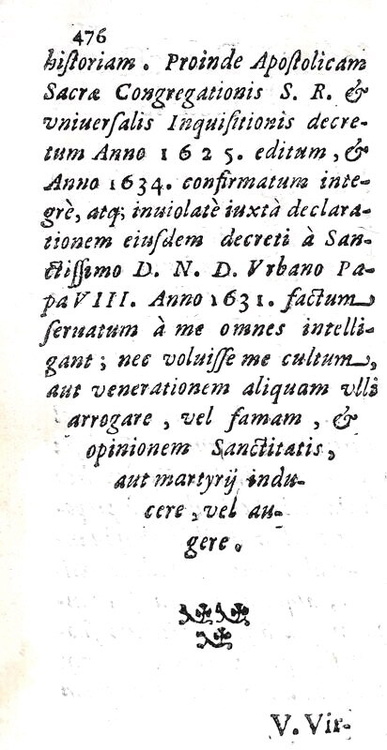 476
hiſtoriam. Proinde Apoſtolicam
Sacræ Congregationis S. R. &
vniuerſalis Inquiſitionis decre-
tum Anno 1625. editum, &
Anno 1634. confirmatum inte-
grè, atq; inuiolatè iuxtà declara-
tionem eiuſdem decreti à San-
ctiſſimo D. N. D. Vrbano Pa-
pa VIII. Anno 1631. factum
ſeruatum à me omnes intelli-
gant; nec voluiſſe me cultum,
aut venerationem aliquam vlli
arrogare, vel famam, &
opinionem Sanctitatis,
aut martyrij indu-
cere, vel au-
gere.
V. Vir-